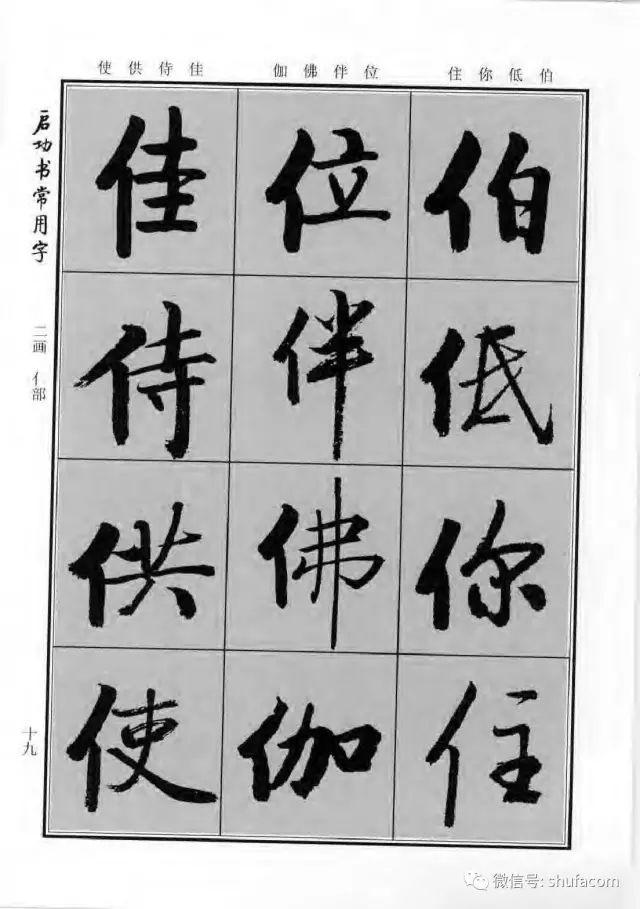 使供侍佳 伽佛伴位 住你低伯
启功书常用字
二画 亻部
十九
伯低你住
位伴佛伽
佳侍供使
微信号: shufacom